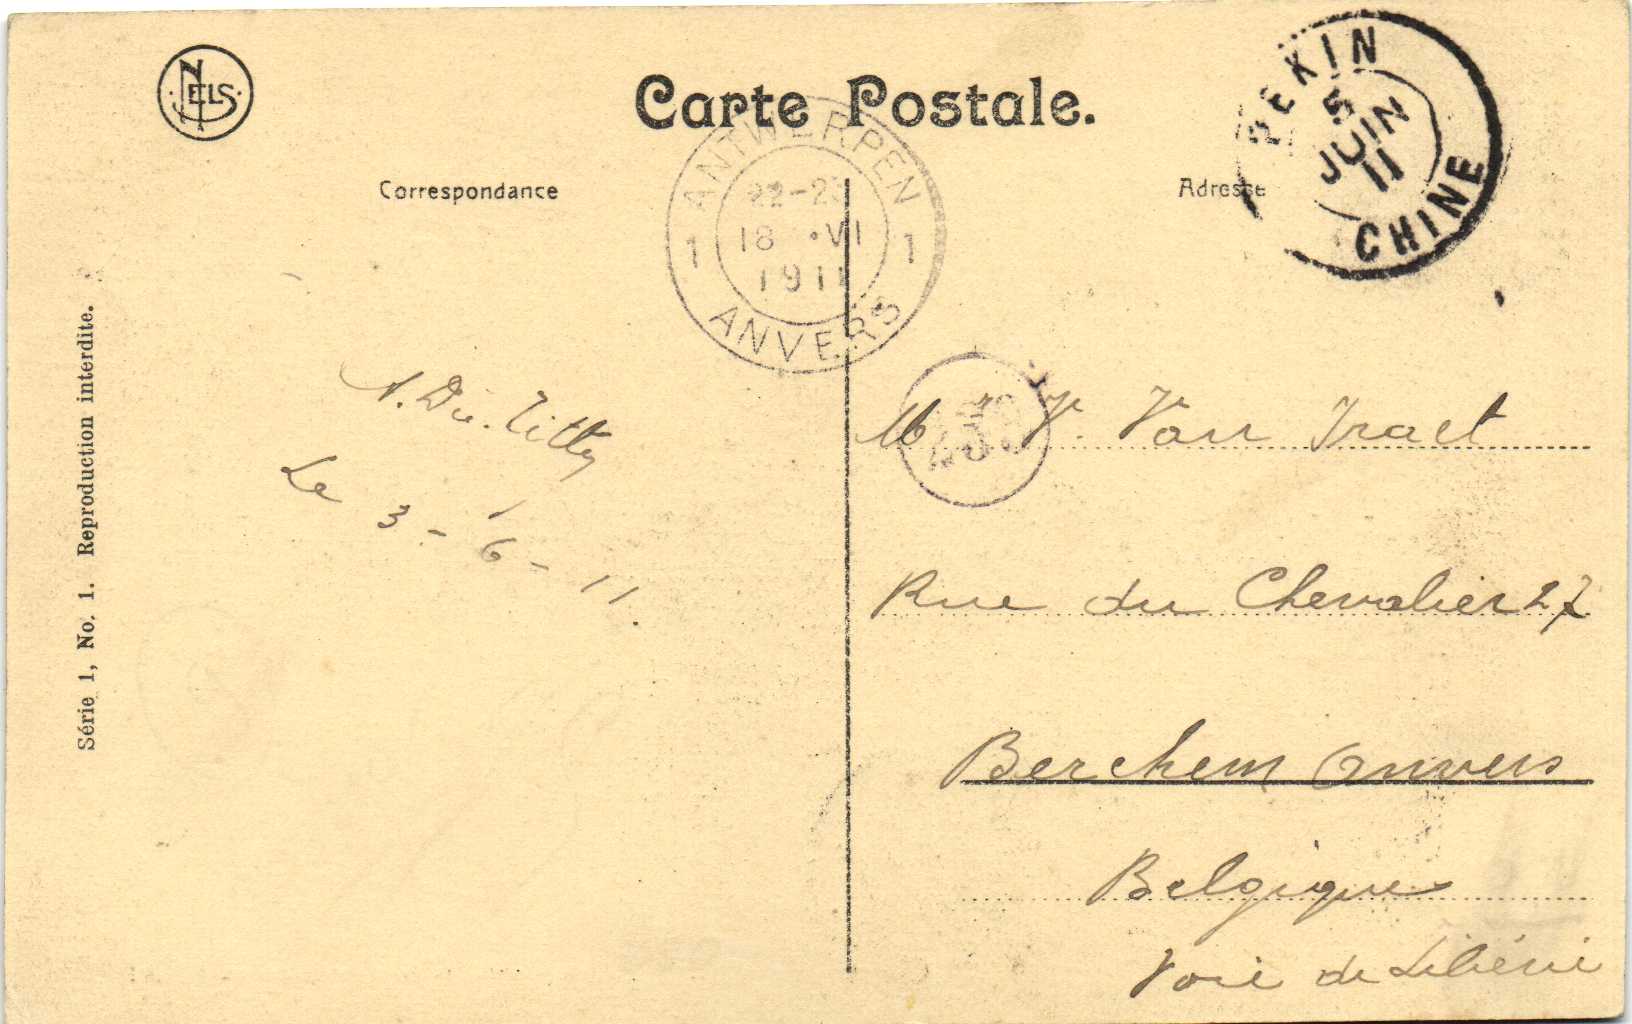 NELS
Carte Postale.
Correspondance
Adresse
PEKIN
5
JUIN
11
CHINE
ANTWERPEN
22-23
1 18 · VI 1
1911
ANVERS
Série 1, No. 1. Reproduction interdite.
Le 3-6-11.
Mr V. Van Tract
Rue du Chevalier 27
Berchem Anvers
Belgique
Voie de Sibérie